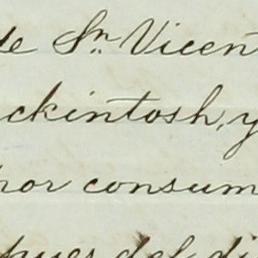 de Sr. Vicent
ckintosh, y
por consum
pues del di